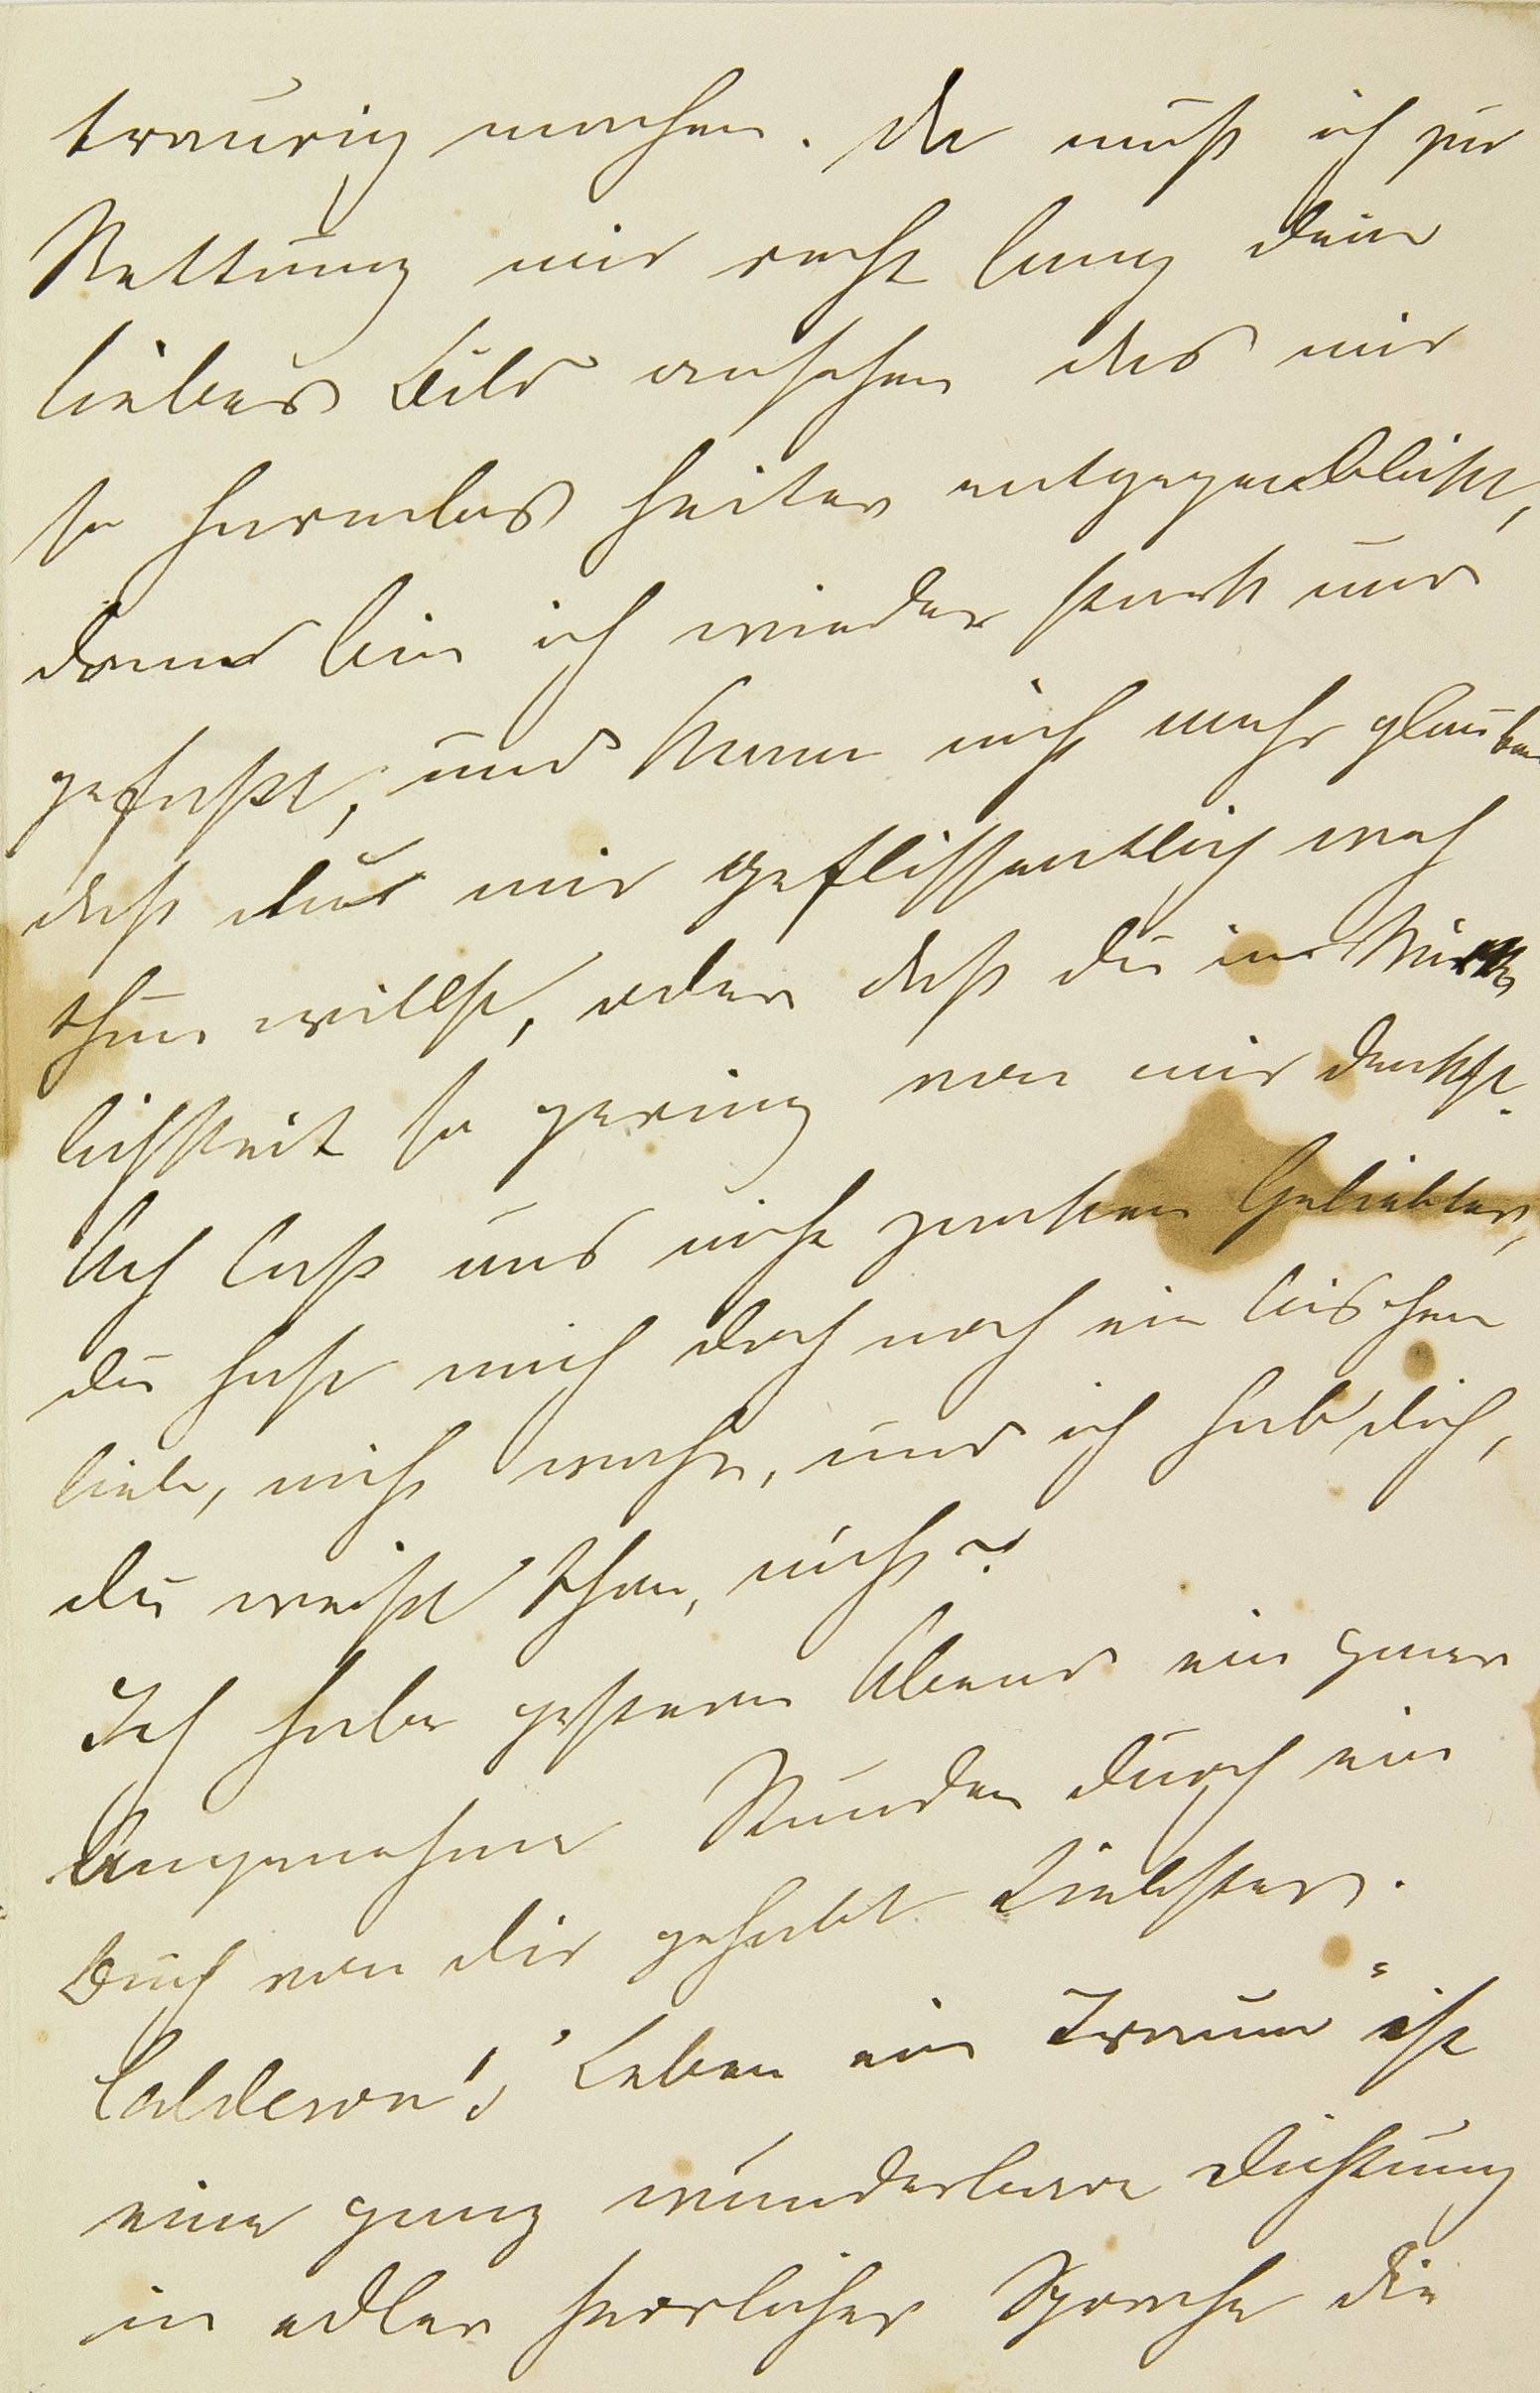 traurig machen. Da muß ich zur
Rettung mir recht lang dein
liebes Bild ansehen das mir
so harmlos heiter entgegenblickt,
dann bin ich wieder stark und
gefaßt, und kann nicht mehr glauben
daß du mir geflissentlich weh
thun willst, oder daß du in Wirk
lichkeit so gering von mir denkst.
Ach laß uns nicht zanken Geliebter,
du hast mich doch noch ein bischen
lieb, nicht wahr, und ich hab dich,
du weißt schon, nicht?
Ich habe gestern Abend ein paar
Angenehme Stunden durch ein
Buch von dir gehabt Liebster.
Calderon's, "Leben ein Traum" ist
eine ganz wunderbare Dichtung
in edler herrlicher Sprache die